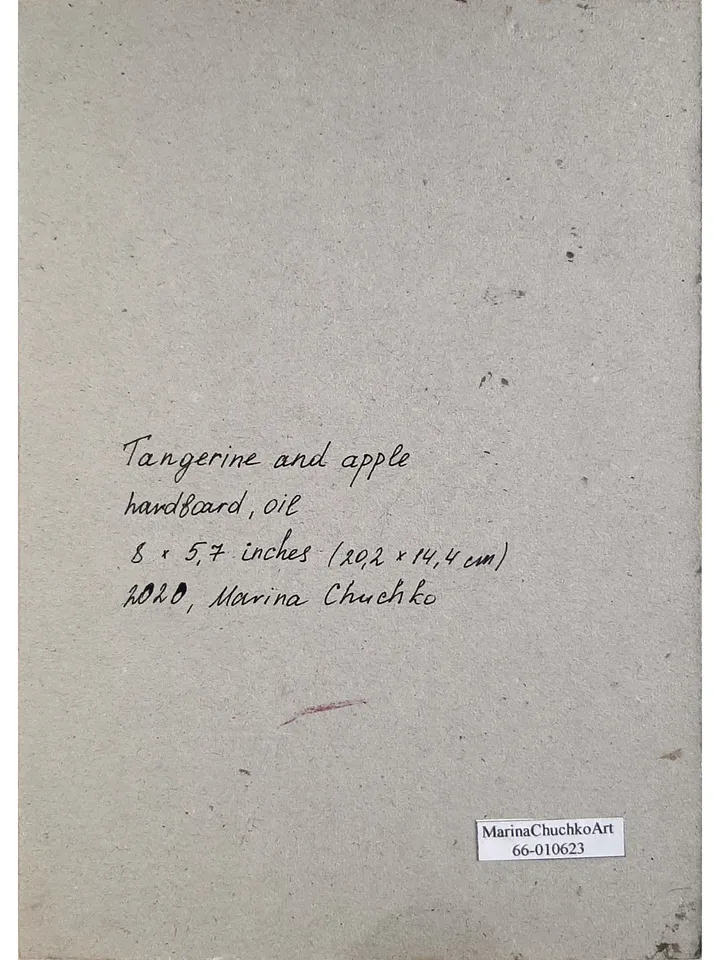 Tangerine and apple
hardboard, oil
8 × 5,7 inches (20,2 × 14,4 cm)
2020, Marina Chuchko
MarinaChuchkoArt
66-010623